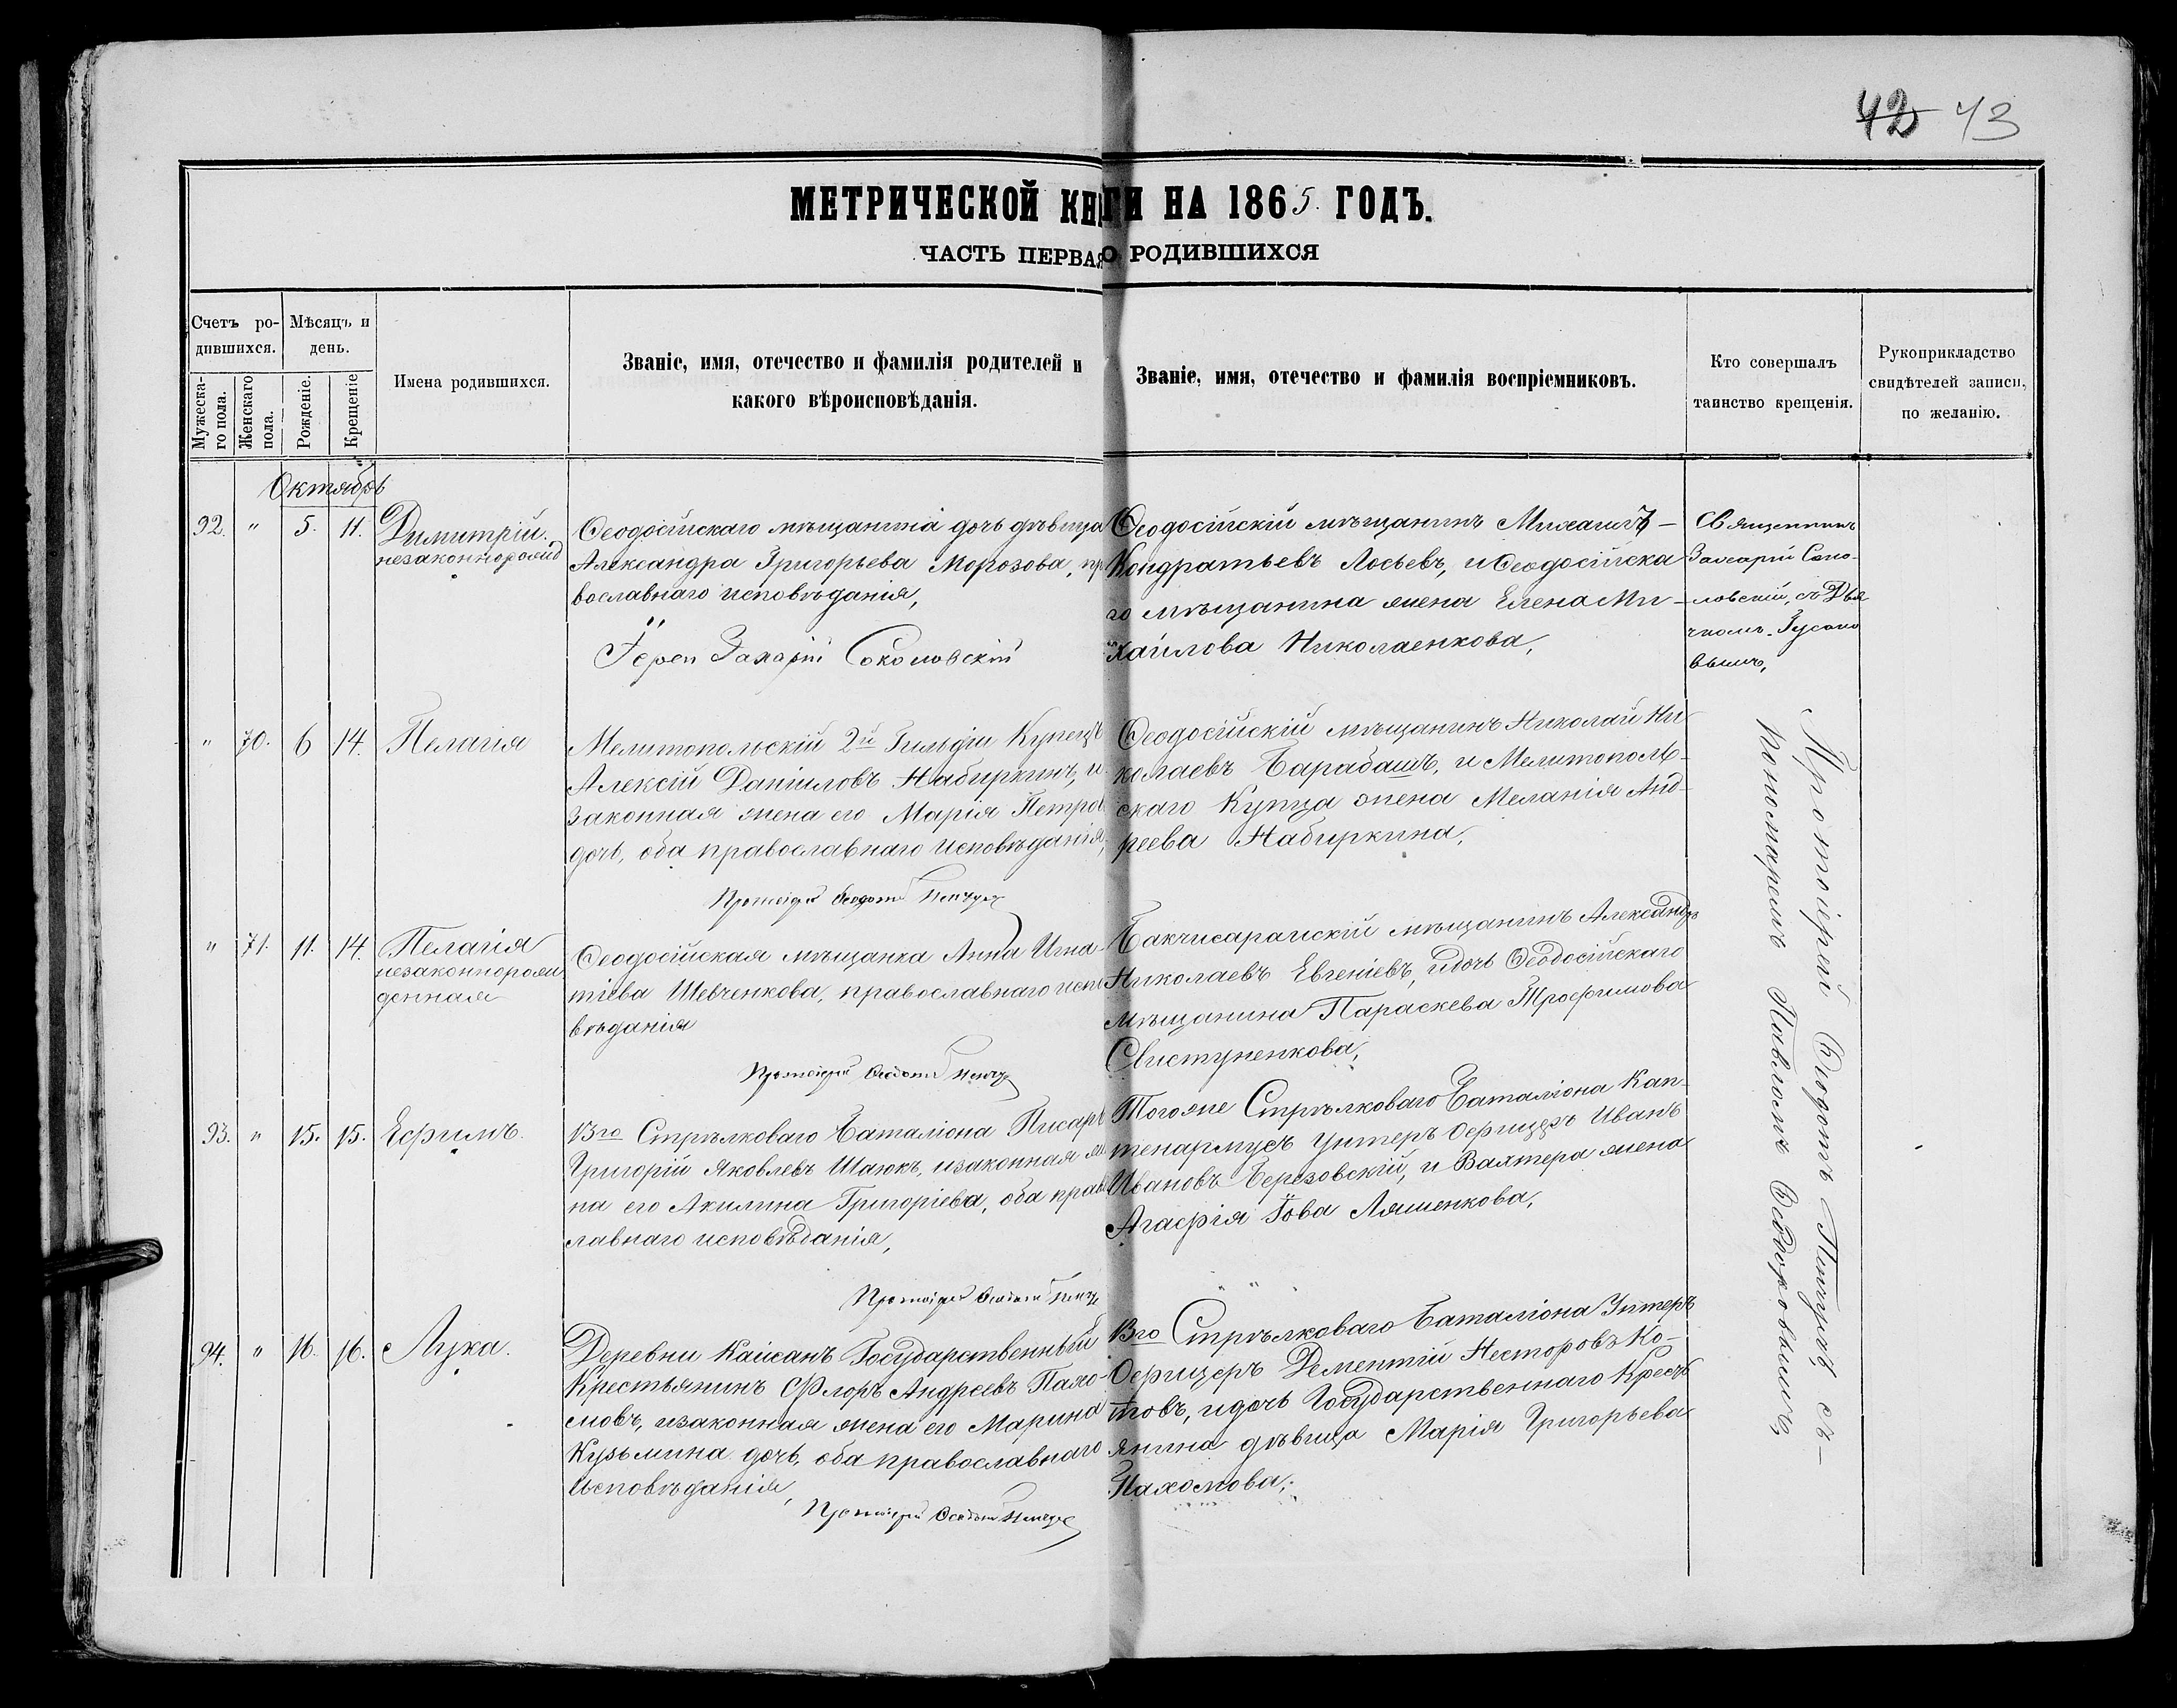 42 43
МЕТРИЧЕСКОЙ КНИГИ НА 1865 ГОДЪ.
ЧАСТЬ ПЕРВАЯ О РОДИВШИХСЯ
Счетъ ро-
дившихся.
Мужеска-
го пола.
Женскаго
пола.
Мѣсяцъ и
день.
Рожденіе.
Крещеніе
Имена родившихся.
Званіе, имя, отечество и фамилія родителей и
какого вѣроисповѣданія.
Званіе, имя, отечество и фамилія воспріемниковъ.
Кто совершалъ
таинство крещенія.
Рукоприкладство
свидѣтелей записи,
по желанію.
Октябрь
92. " 5. 11. Димитрій.
незаконнорожд
Ѳеодосійскаго мѣщанина дочь дѣвица
Александра Григорьева Морозова, пр
вославнаго исповѣданія,
Іерей Захарій Соколовскій
Ѳеодосійскій мѣщанинъ Михаилъ -
Кондратьевъ Лосьевъ, и Ѳеодосійска
го мѣщанина жена Елена Ми-
хайлова Николаенкова,
Священникъ
Захарій Соко-
ловскій, съ Дья
чкомъ
вымъ,
" 70. 6 14. Пелагія
Мелитопольскій 2й Гильдіи Купецъ
Алексій Даніиловъ Набиркинъ, и
законная жена его Марія Петро
дочь, оба православнаго исповѣданія,
Протоіерей Ѳеодотъ
Ѳеодосійскій мѣщанинъ Николай Ни
колаевъ Барабашъ, и Мелитополь-
скаго Купца жена Меланія Анд-
реева Набиркина,
" 71. 11. 14. Пелагія
незаконнорож
денная
Ѳеодосійская мѣщанка Анна Игна-
тіева Шевченкова, православнаго испо
вѣданія
Протоіерей Ѳеодотъ
Бакчисарайскій мѣщанинъ Александръ
Николаевъ Евгеніевъ, и дочь Ѳеодосійскаго
мѣщанина Параскева Трофимова
Свистуненкова,
93. " 15. 15. Ефимъ.
13го Стрѣлковаго Баталіона Писарь
Григорій Яковлевъ Шаюкъ, и законная же
на его Акилина Григоріева, оба право
лавнаго исповѣданія,
Протоіерей Ѳеодотъ
Тогоже Стрѣлковаго Баталіона Кап-
тенармусъ Унтеръ Офицеръ Иванъ
Ивановъ Березовскій, и Вахтера жена
Агафія Іова Ляшенкова,
94. " 16. 16. Лука.
Деревни Кайсанъ Государственный
Крестьянинъ Флоръ Андреевъ Пахо-
мовъ, и законная жена его Марина
Кузьмина дочь, оба православнаго
исповѣданія,
Протоіерей Ѳеодотъ
13го Стрѣлковаго Баталіона Унтеръ
Офицеръ Дементій Несторовъ Ко-
товъ, и дочь Государственнаго Кресть
янина дѣвица Марія Григорьева
Пахомова;
Протоіерей Ѳеодотъ съ-
пономаремъ Павломъ